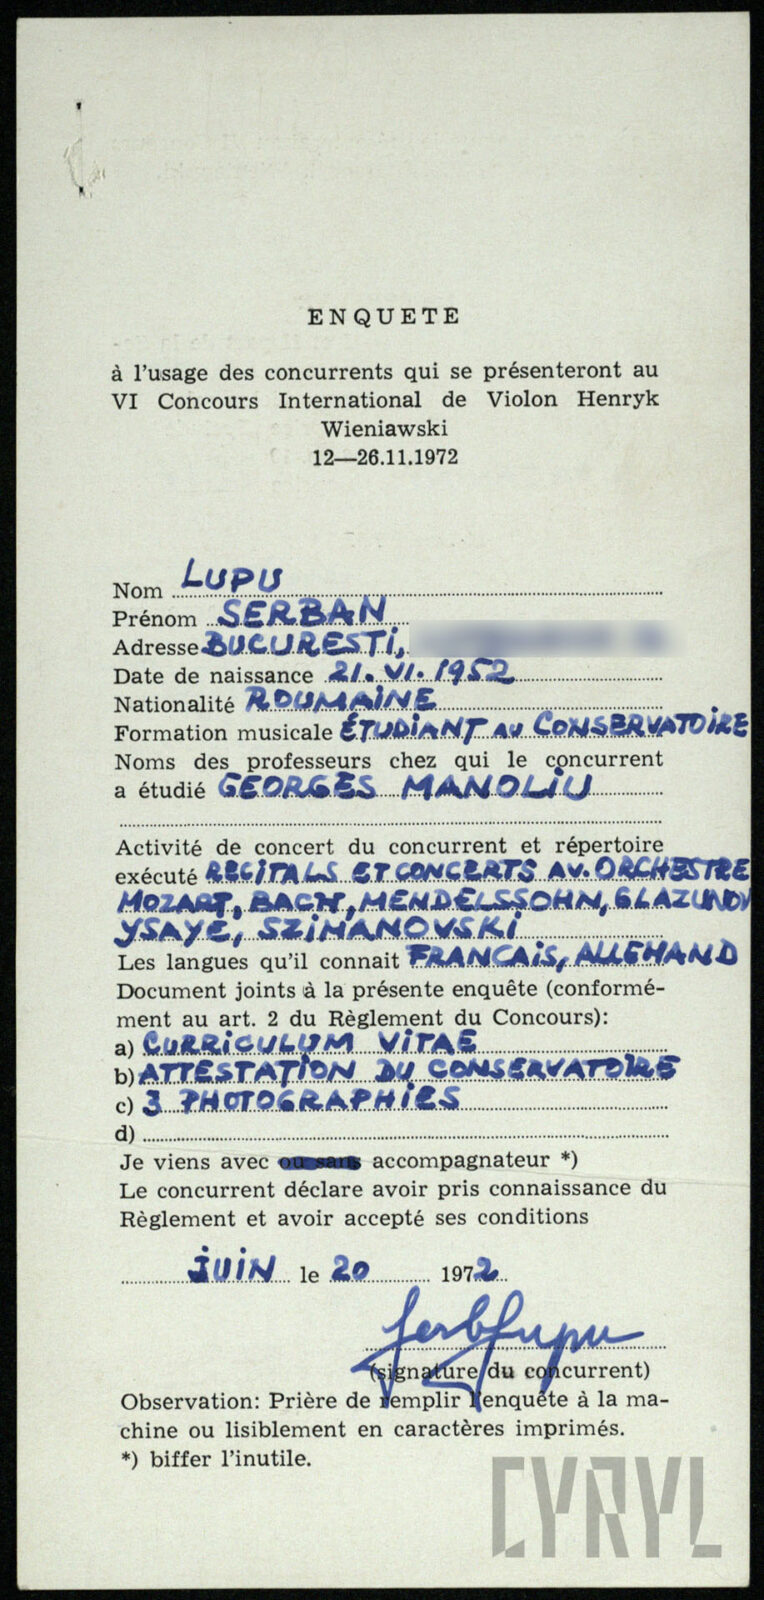 ENQUETE
à l'usage des concurrents qui se présenteront au
VI Concours International de Violon Henryk
Wieniawski
12—26.11.1972
Nom LUPU
Prénom SERBAN
Adresse BUCURESTI,
Date de naissance 21. VI. 1952
Nationalité ROUMAINE
Formation musicale ÉTUDIANT AU CONSERVATOIRE
Noms des professeurs chez qui le concurrent
a étudié GEORGES MANOLIU
Activité de concert du concurrent et répertoire
exécuté RECITALS ET CONCERTS AV. ORCHESTRE
MOZART, BACH, MENDELSSOHN, GLAZUNOV
YSAYE, SZIMANOVSKI
Les langues qu'il connait FRANCAIS, ALLEMAND
Document joints à la présente enquête (conformé-
ment au art. 2 du Règlement du Concours):
a) CURRICULUM VITAE
b) ATTESTATION DU CONSERVATOIRE
c) 3 PHOTOGRAPHIES
d)
Je viens avec ou sans accompagnateur *)
Le concurrent déclare avoir pris connaissance du
Règlement et avoir accepté ses conditions
JUIN le 20 1972
SerbLupu
(signature du concurrent)
Observation: Prière de remplir l'enquête à la ma-
chine ou lisiblement en caractères imprimés.
*) biffer l'inutile.
CYRYL